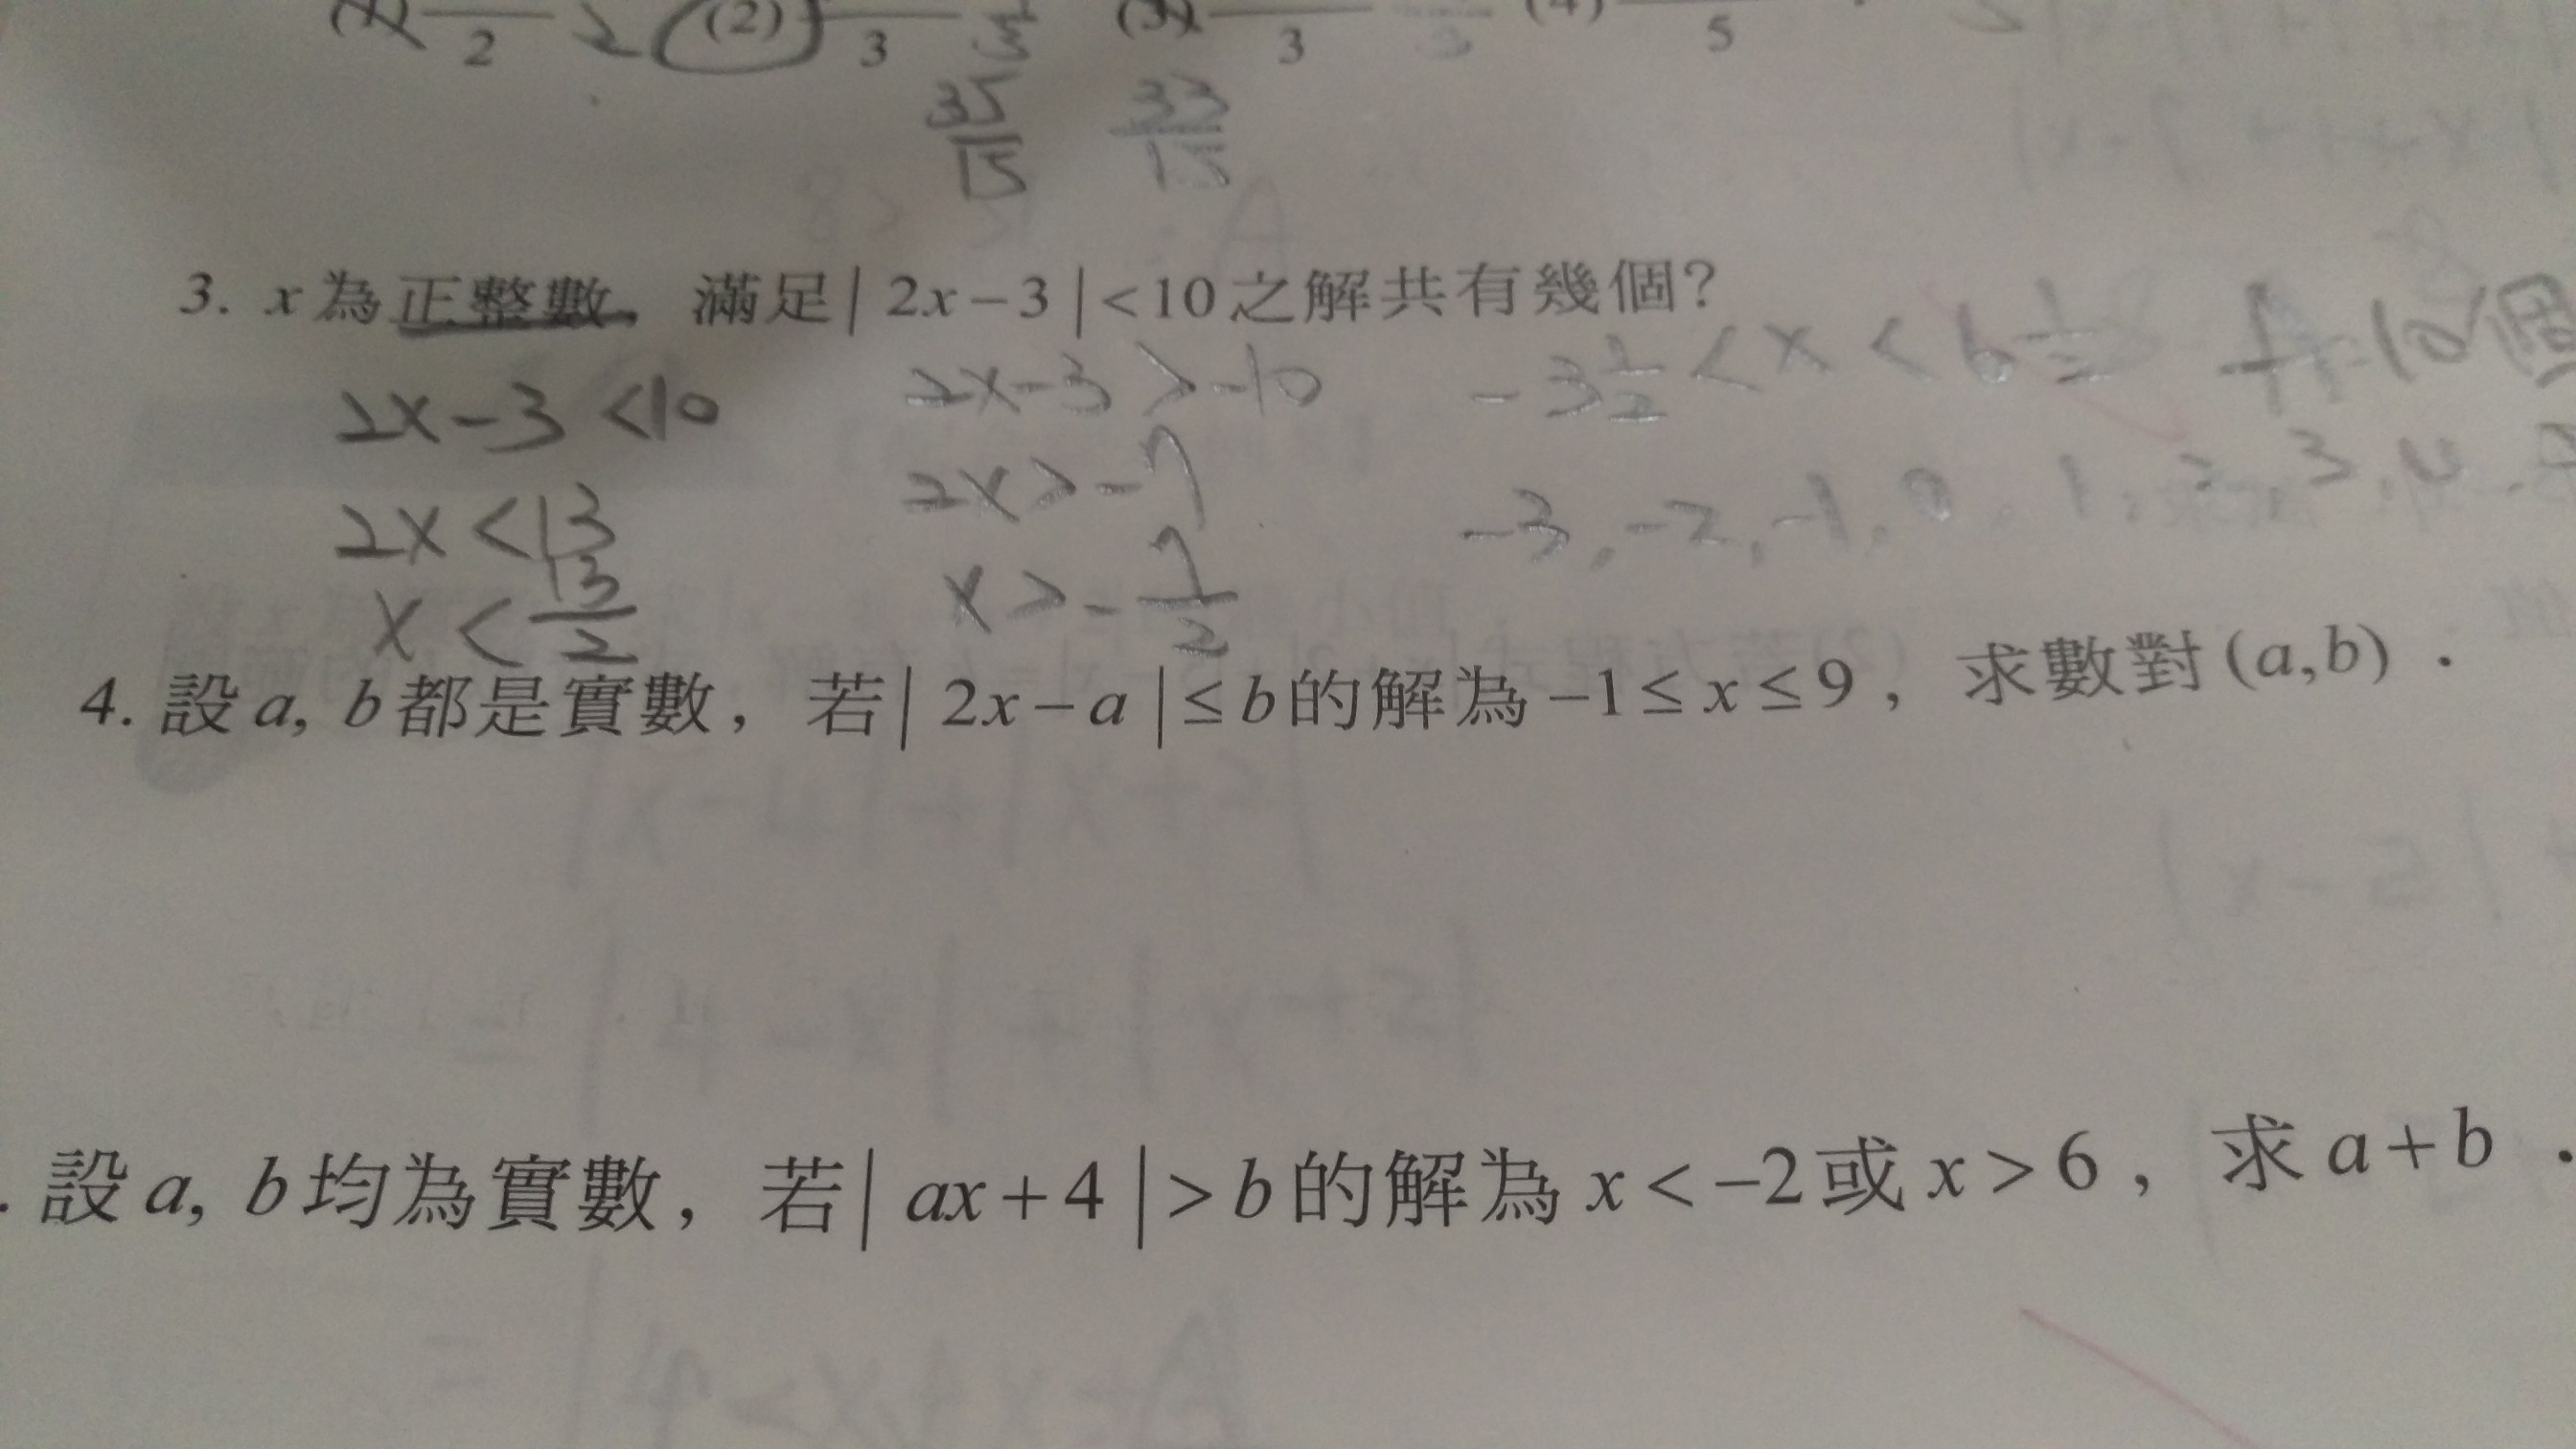 (1) 2 2 (2) 3 (3) 3 (4) 5
35/15 33/15
3. x 為正整數，滿足| 2x − 3 | < 10 之解共有幾個？
-3 1/2 < x < 6 1/2 10個
2x-3 <10 2x-3 > -10
-3, -2, -1, 0, 1, 2, 3, 4,
2x < 13 2x > -7
x < 13/2 x > -7/2
4. 設 a, b 都是實數，若| 2x − a | ≤ b 的解為 −1 ≤ x ≤ 9，求數對 (a,b)．
. 設 a, b 均為實數，若| ax + 4 | > b 的解為 x < −2 或 x > 6，求 a + b．